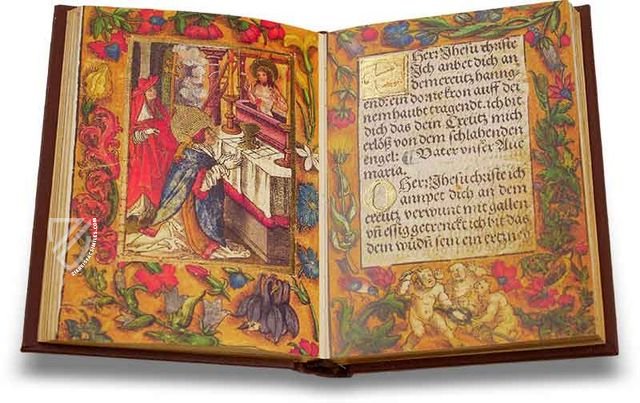 Herr Jhesu christe
Ich anbet dich an
dem creutz hanng-
end: ein dorne kron auff dei-
nem haubt tragendt. ich bit
dich das dein Creutz mich
erlöß von dem schlahenden
engel. Vater unser Aue
maria.
O Herr Jhesu christe ich
anpet dich an dem
creutz verwunt mit gallen
vn̄ essig getrenckt ich bit das
dein wundn̄ sein ein ertzn
ZIEREISFACSIMILES.COM